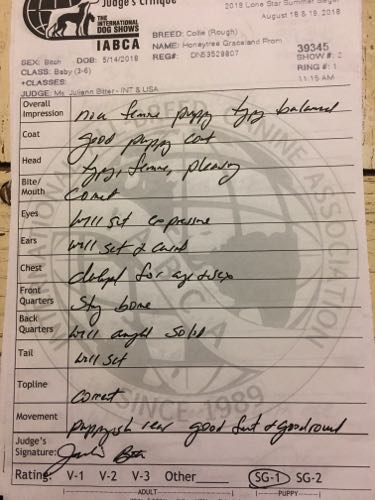 Judge's Critique
2018 Lone Star Summer
August 18 & 19, 2018
THE INTERNATIONAL DOG SHOWS
IABCA
BREED: Collie (Rough)
NAME: Honeytree Graceland Prom
39345
SEX: Bitch DOB: 5/14/2018 REG#: DN53529807
SHOW #: 2
CLASS: Baby (3-6)
RING #: 1
+CLASSES:
11:15 AM
JUDGE: Ms. Juliann Bitter - INT & USA
Overall Impression nice femme puppy typy balanced
Coat good puppy coat
Head typy, femme, pleasing
Bite/Mouth Correct
Eyes well set expressive
Ears well set & carried
Chest for age & sex
Front Quarters bone
Back Quarters well angled solid
Tail well set
Topline correct
Movement puppyish rear good front & good round
Judge's Signature:
Rating: V-1 V-2 V-3 Other SG-1 SG-2
ADULT PUPPY
CANINE ASSOCIATION
IABCA
SINCE 1989